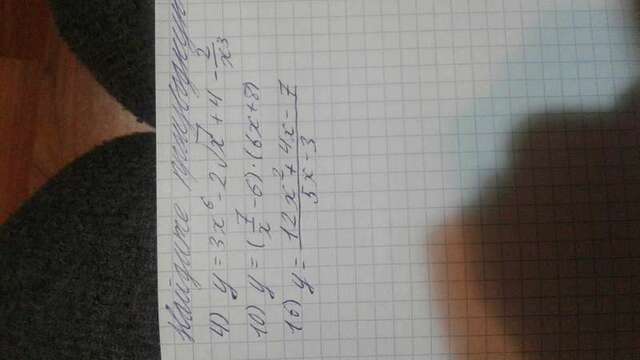 Найдите производную
4) y = 3x⁶ - 2√x + 4 - 2/x³
10) y = (7/x - 6)·(6x+8)
16) y = (12x² + 4x - 7)/(5x - 3)